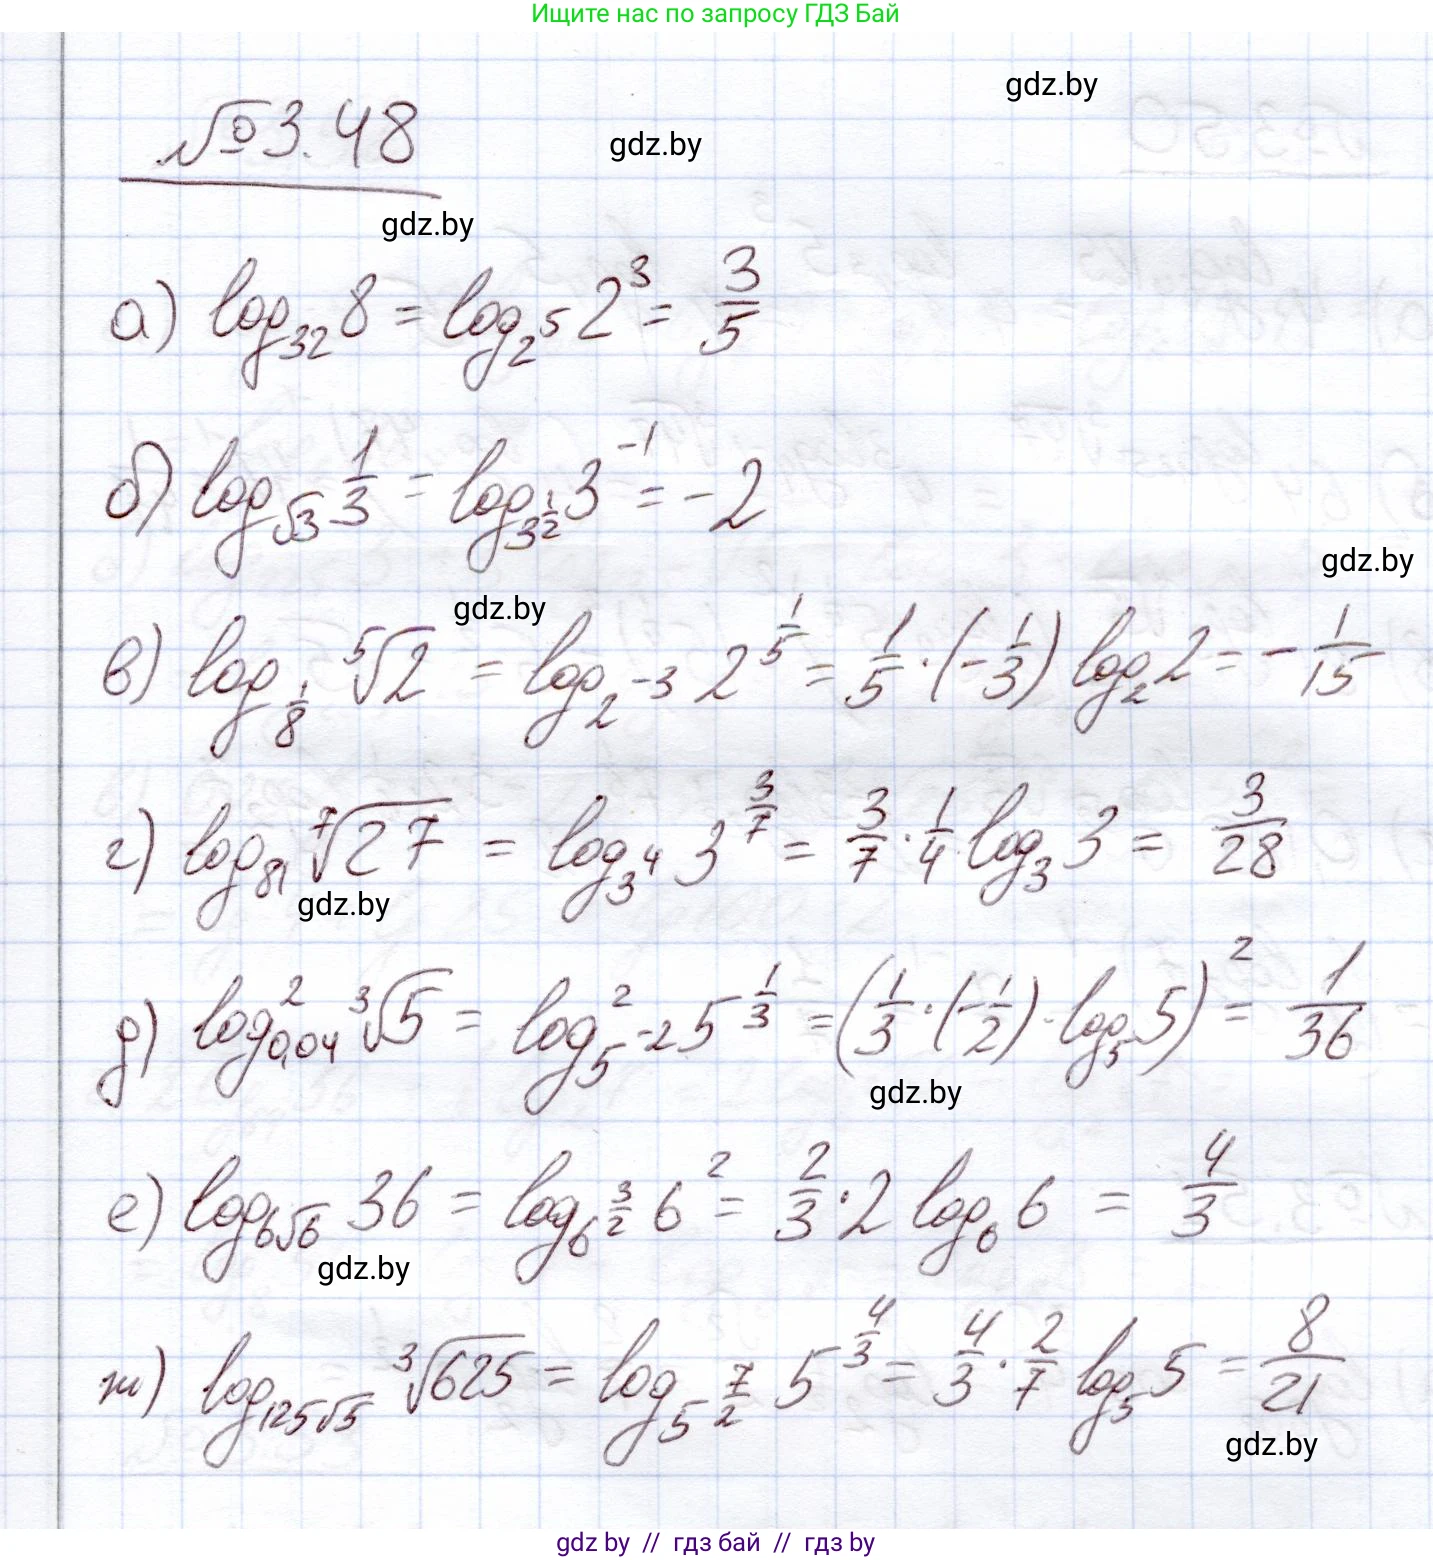 Ищите нас по запросу ГДЗ Бай
gdz.by
№3.48
gdz.by
gdz.by
а) log₃₂ 8 = log_{2^5} 2^3 = 3/5
б) log_{√3} 1/3 = log_{3^{1/2}} 3^{-1} = -2
gdz.by
gdz.by
в) log_{1/8} ⁵√2 = log_{2^{-3}} 2^{1/5} = 1/5 · (-1/3) log₂ 2 = - 1/15
г) log₈₁ ⁷√27 = log_{3^4} 3^{3/7} = 3/7 · 1/4 log₃ 3 = 3/28
gdz.by
д) log²_{0,04} ³√5 = log²_{5^{-2}} 5^{1/3} = (1/3 · (-1/2) · log₅ 5)² = 1/36
gdz.by
е) log_{6√6} 36 = log_{6^{3/2}} 6² = 2/3 · 2 log₆ 6 = 4/3
gdz.by
ж) log_{125√5} ³√625 = log_{5^{7/2}} 5^{4/3} = 4/3 · 2/7 log₅ 5 = 8/21
gdz.by
gdz by // гдз бай // gdz by